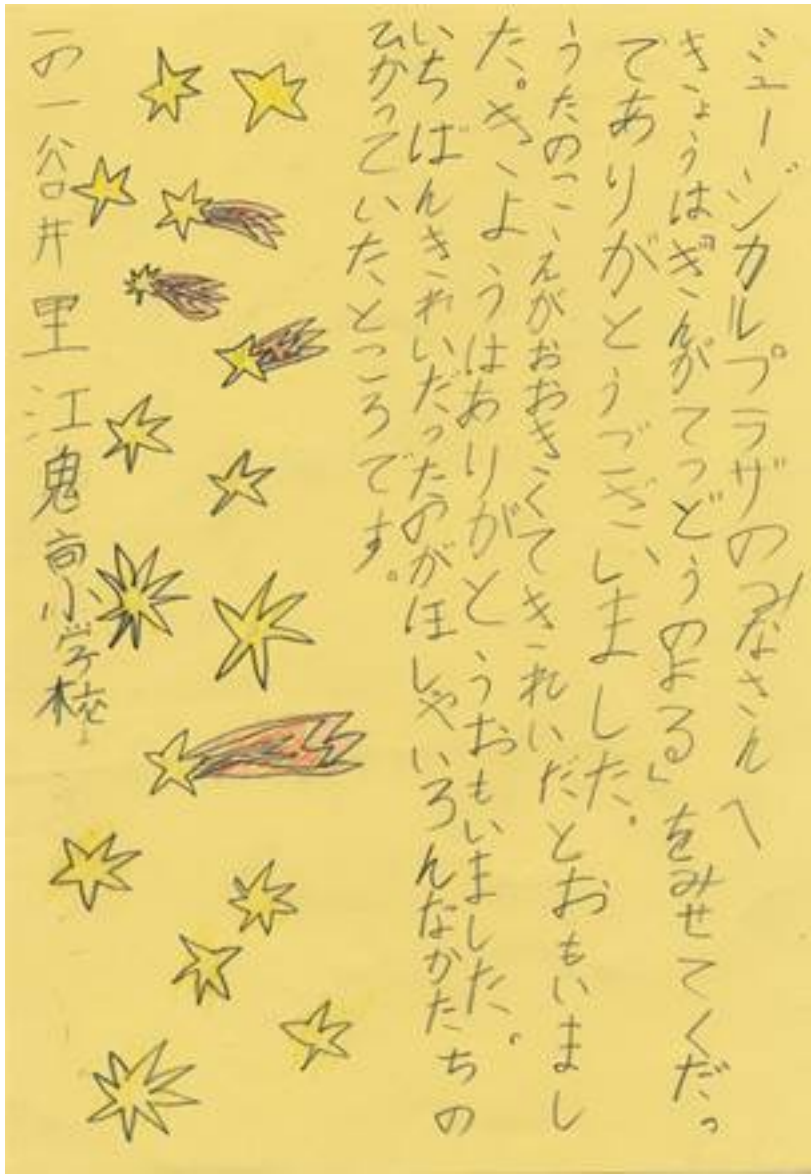 ミュージカルプラザのみなさんへ
きょうは『ぎんがてつどうのよる」をみせてくだっ
てありがとうございしました。
うたのこえがおおきくてきれいだとおもいまし
た。きようはありがとうおもいました。
いちばんきれいだったのがほしやいろんなかたちの
ひかっていたところです。
一の一谷井里江鬼高小学校